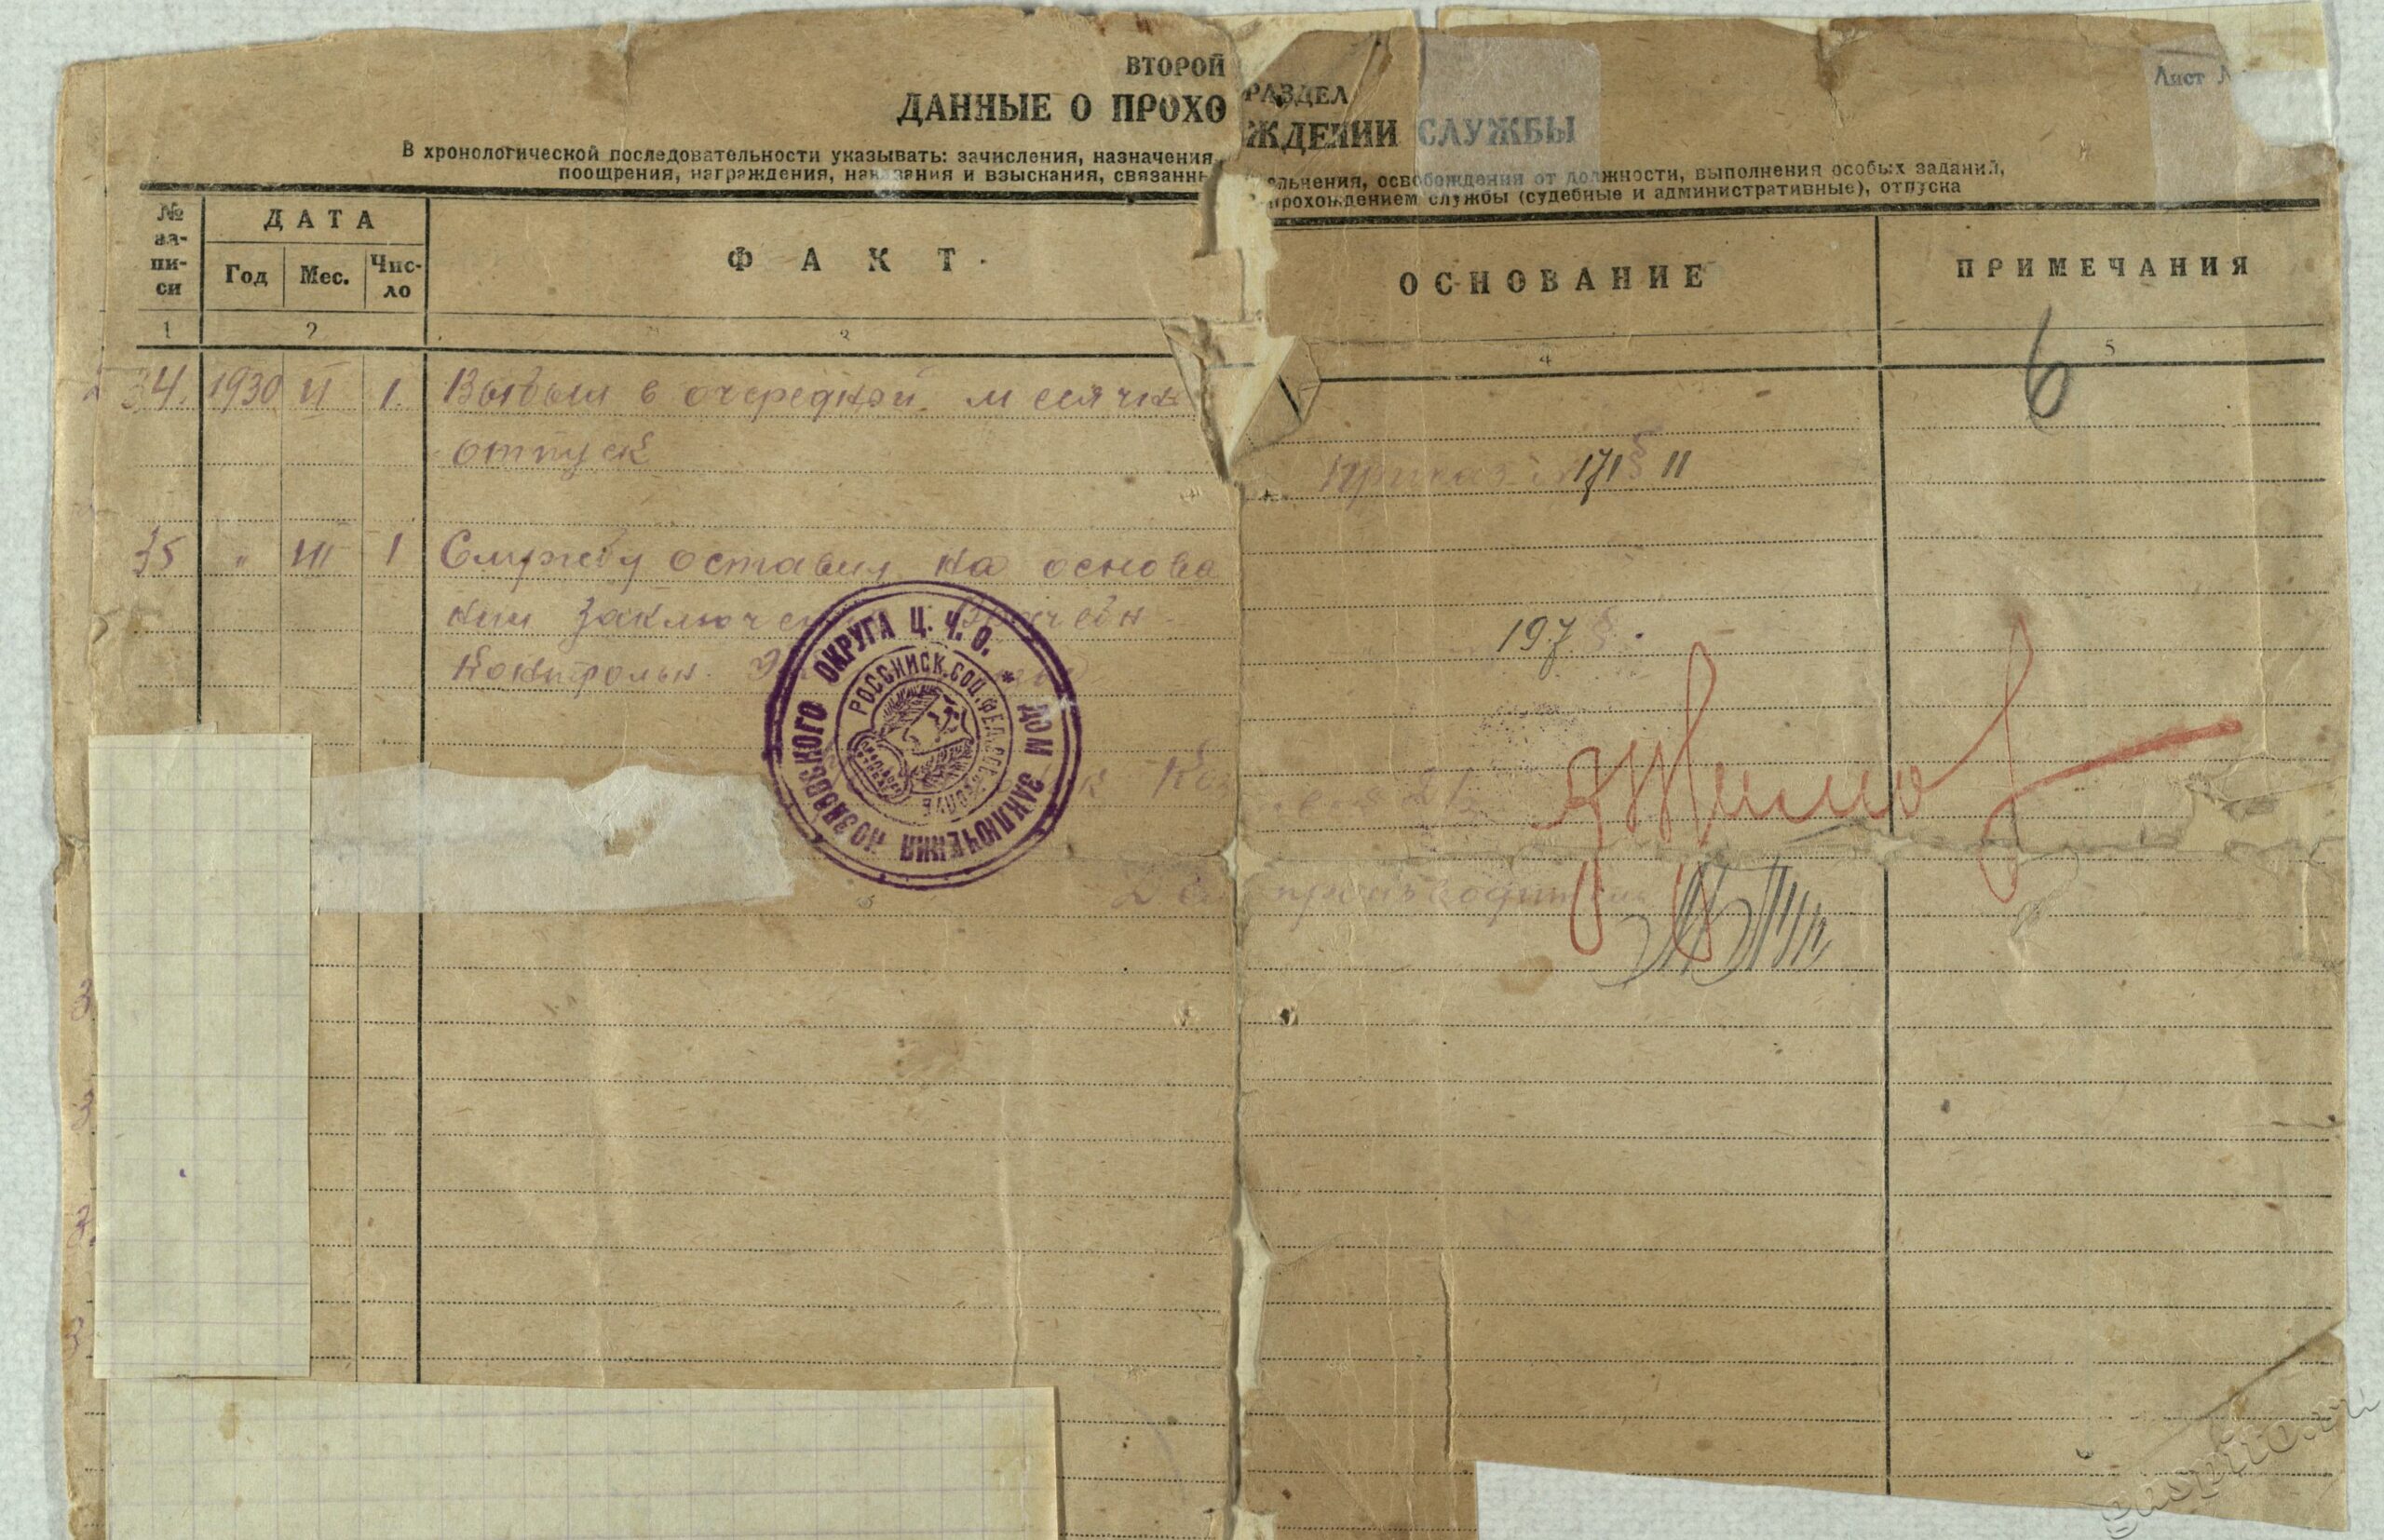 ВТОРОЙ РАЗДЕЛ
Лист
ДАННЫЕ О ПРОХОЖДЕНИИ СЛУЖБЫ
В хронологической последовательности указывать: зачисления, назначения, освобождения от должности, выполнения особых заданий,
поощрения, награждения, наказания и взыскания, связанн прохождением службы (судебные и административные), отпуска
№ за-пи-си
ДАТА
Год Мес. Чис-ло
ФАКТ
ОСНОВАНИЕ
ПРИМЕЧАНИЯ
1 2 3 4 5
6
34. 1930 VI 1. Выбыл в очередной месячн
отпуск
Приказ 171 § 11
35 " VII 1 Службу оставил на основа
нии заключен Врачебн
197 §
Контрольн.
ДОМ ЗАКЛЮЧЕНИЯ КОЗЛОВСКОГО ОКРУГА Ц.Ч.О.
РОССИЙСК.СОЦ.ФЕД.СОВ.
Делопроизводитель
3
3
3
3
gaspito.ru